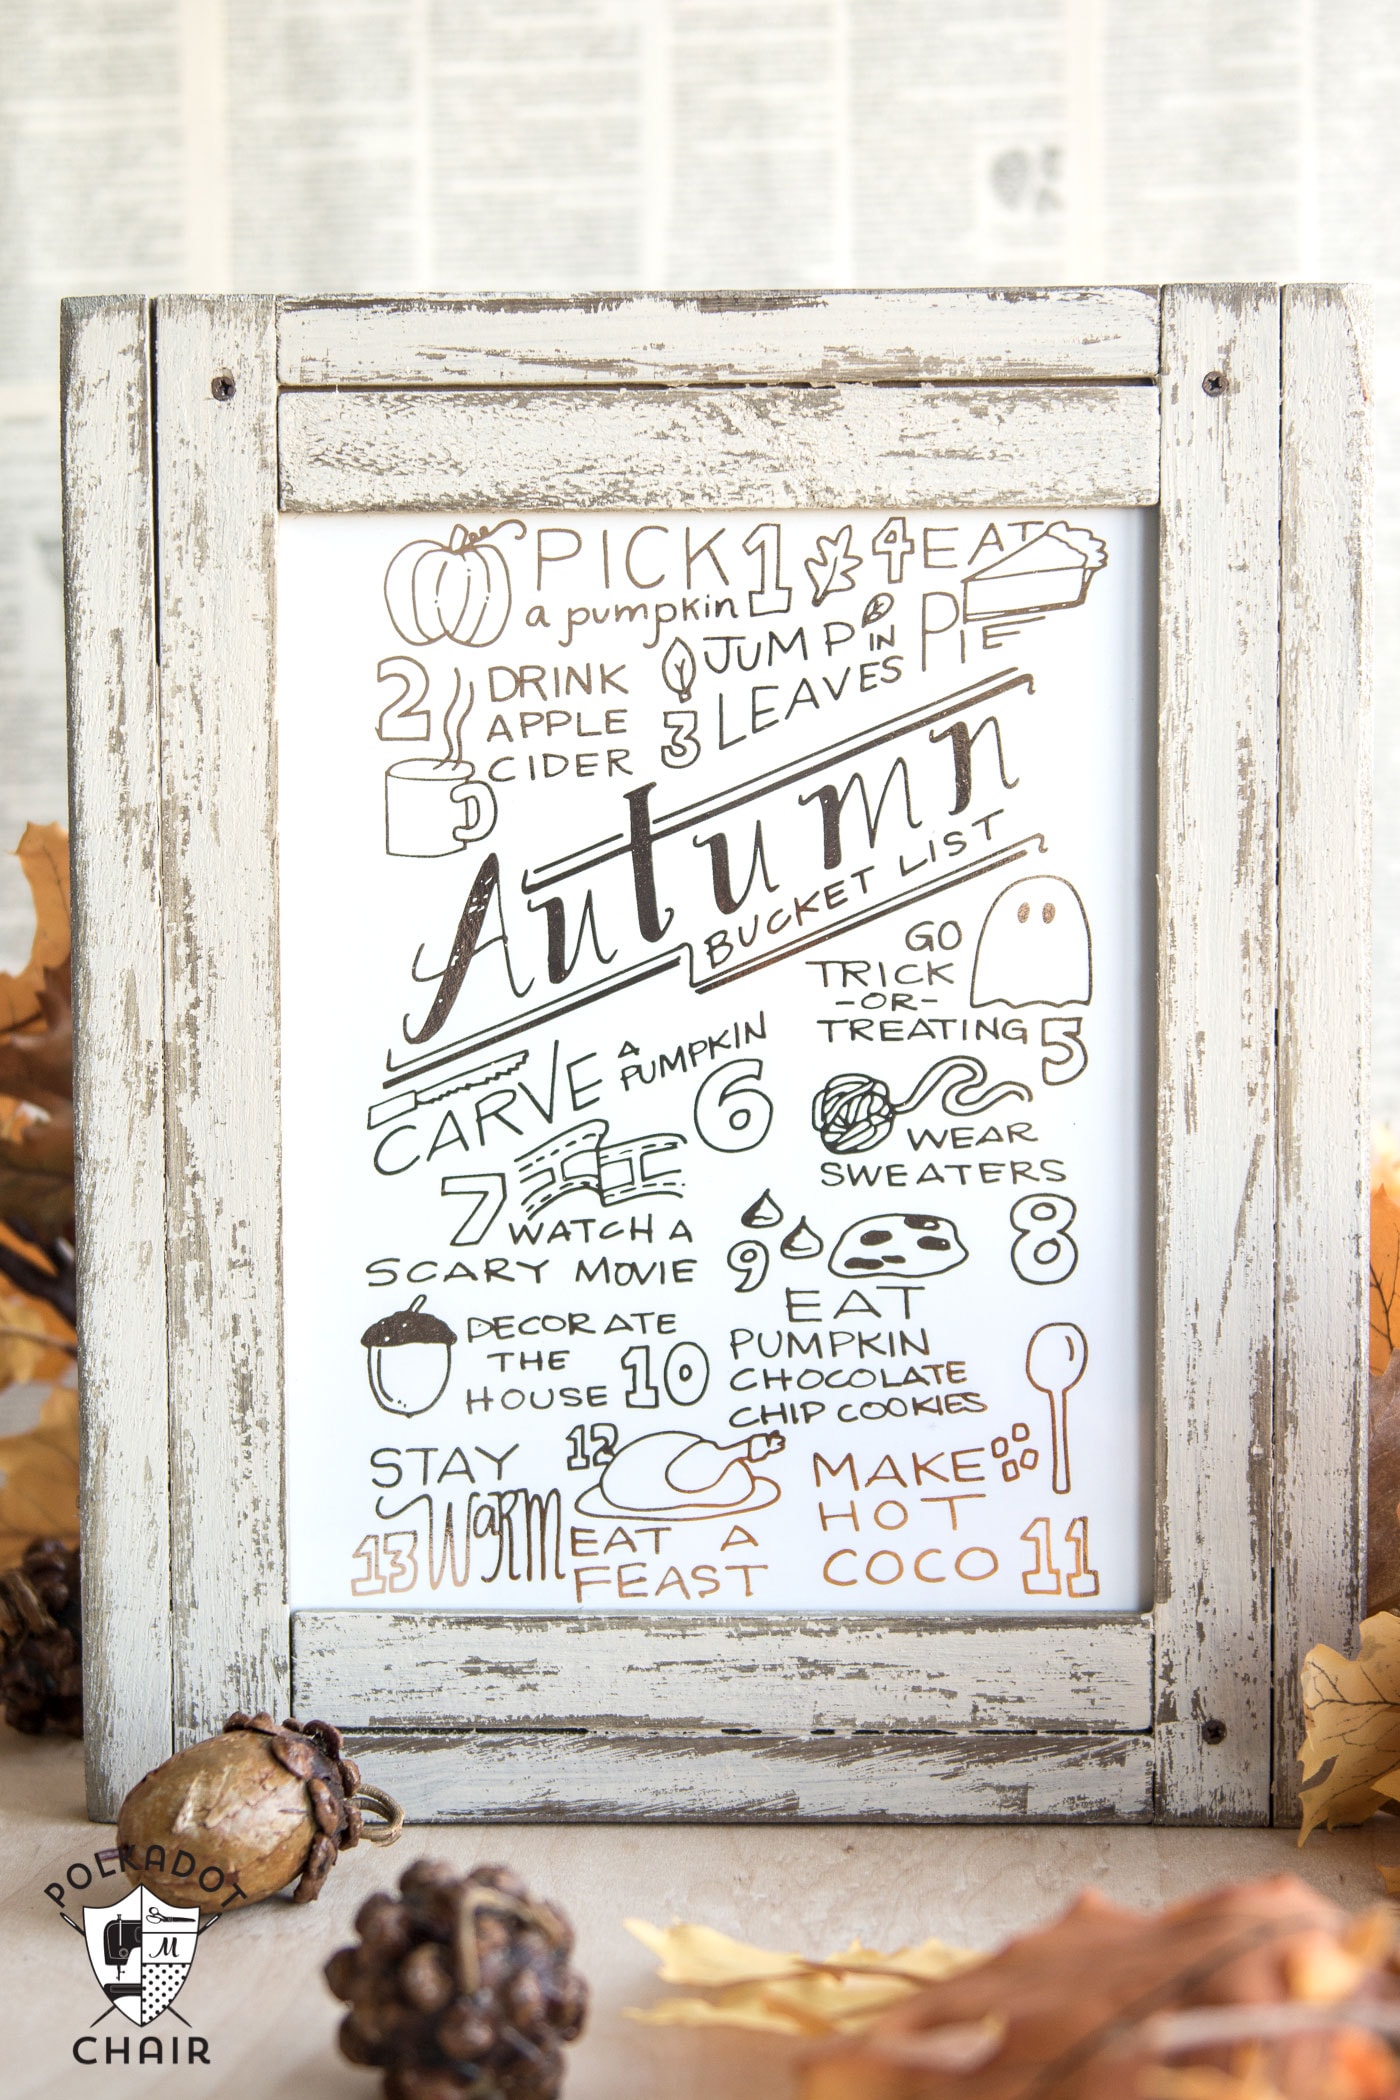 PICK 1
a pumpkin
2 DRINK
APPLE
CIDER
JUMP IN
3 LEAVES
4 EAT
PIE
Autumn
BUCKET LIST
GO
TRICK
-OR-
TREATING 5
CARVE A PUMPKIN
6
7 WATCH A
SCARY MOVIE
WEAR
SWEATERS
8
9 EAT
PUMPKIN
CHOCOLATE
CHIP COOKIES
DECORATE
THE
HOUSE 10
MAKE
HOT
COCO 11
12
EAT A
FEAST
STAY
13 WARM
POLKADOT
M
CHAIR